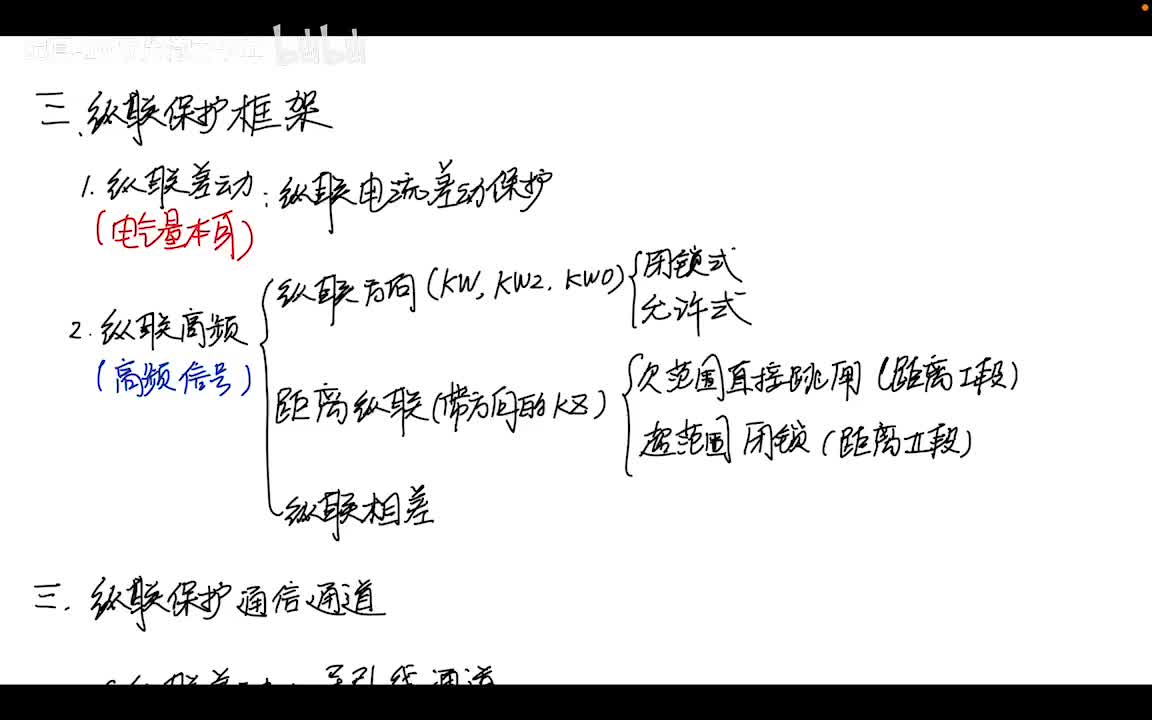 二、纵联保护框架
1. 纵联差动:纵联电流差动保护
(电气量本身)
2. 纵联高频
(高频信号)
纵联方向(KW, KW2, KW0)
闭锁式
允许式
距离纵联(带方向的KZ)
欠范围直接跳闸(距离I段)
超范围闭锁(距离II段)
纵联相差
三. 纵联保护通信通道
bilibili